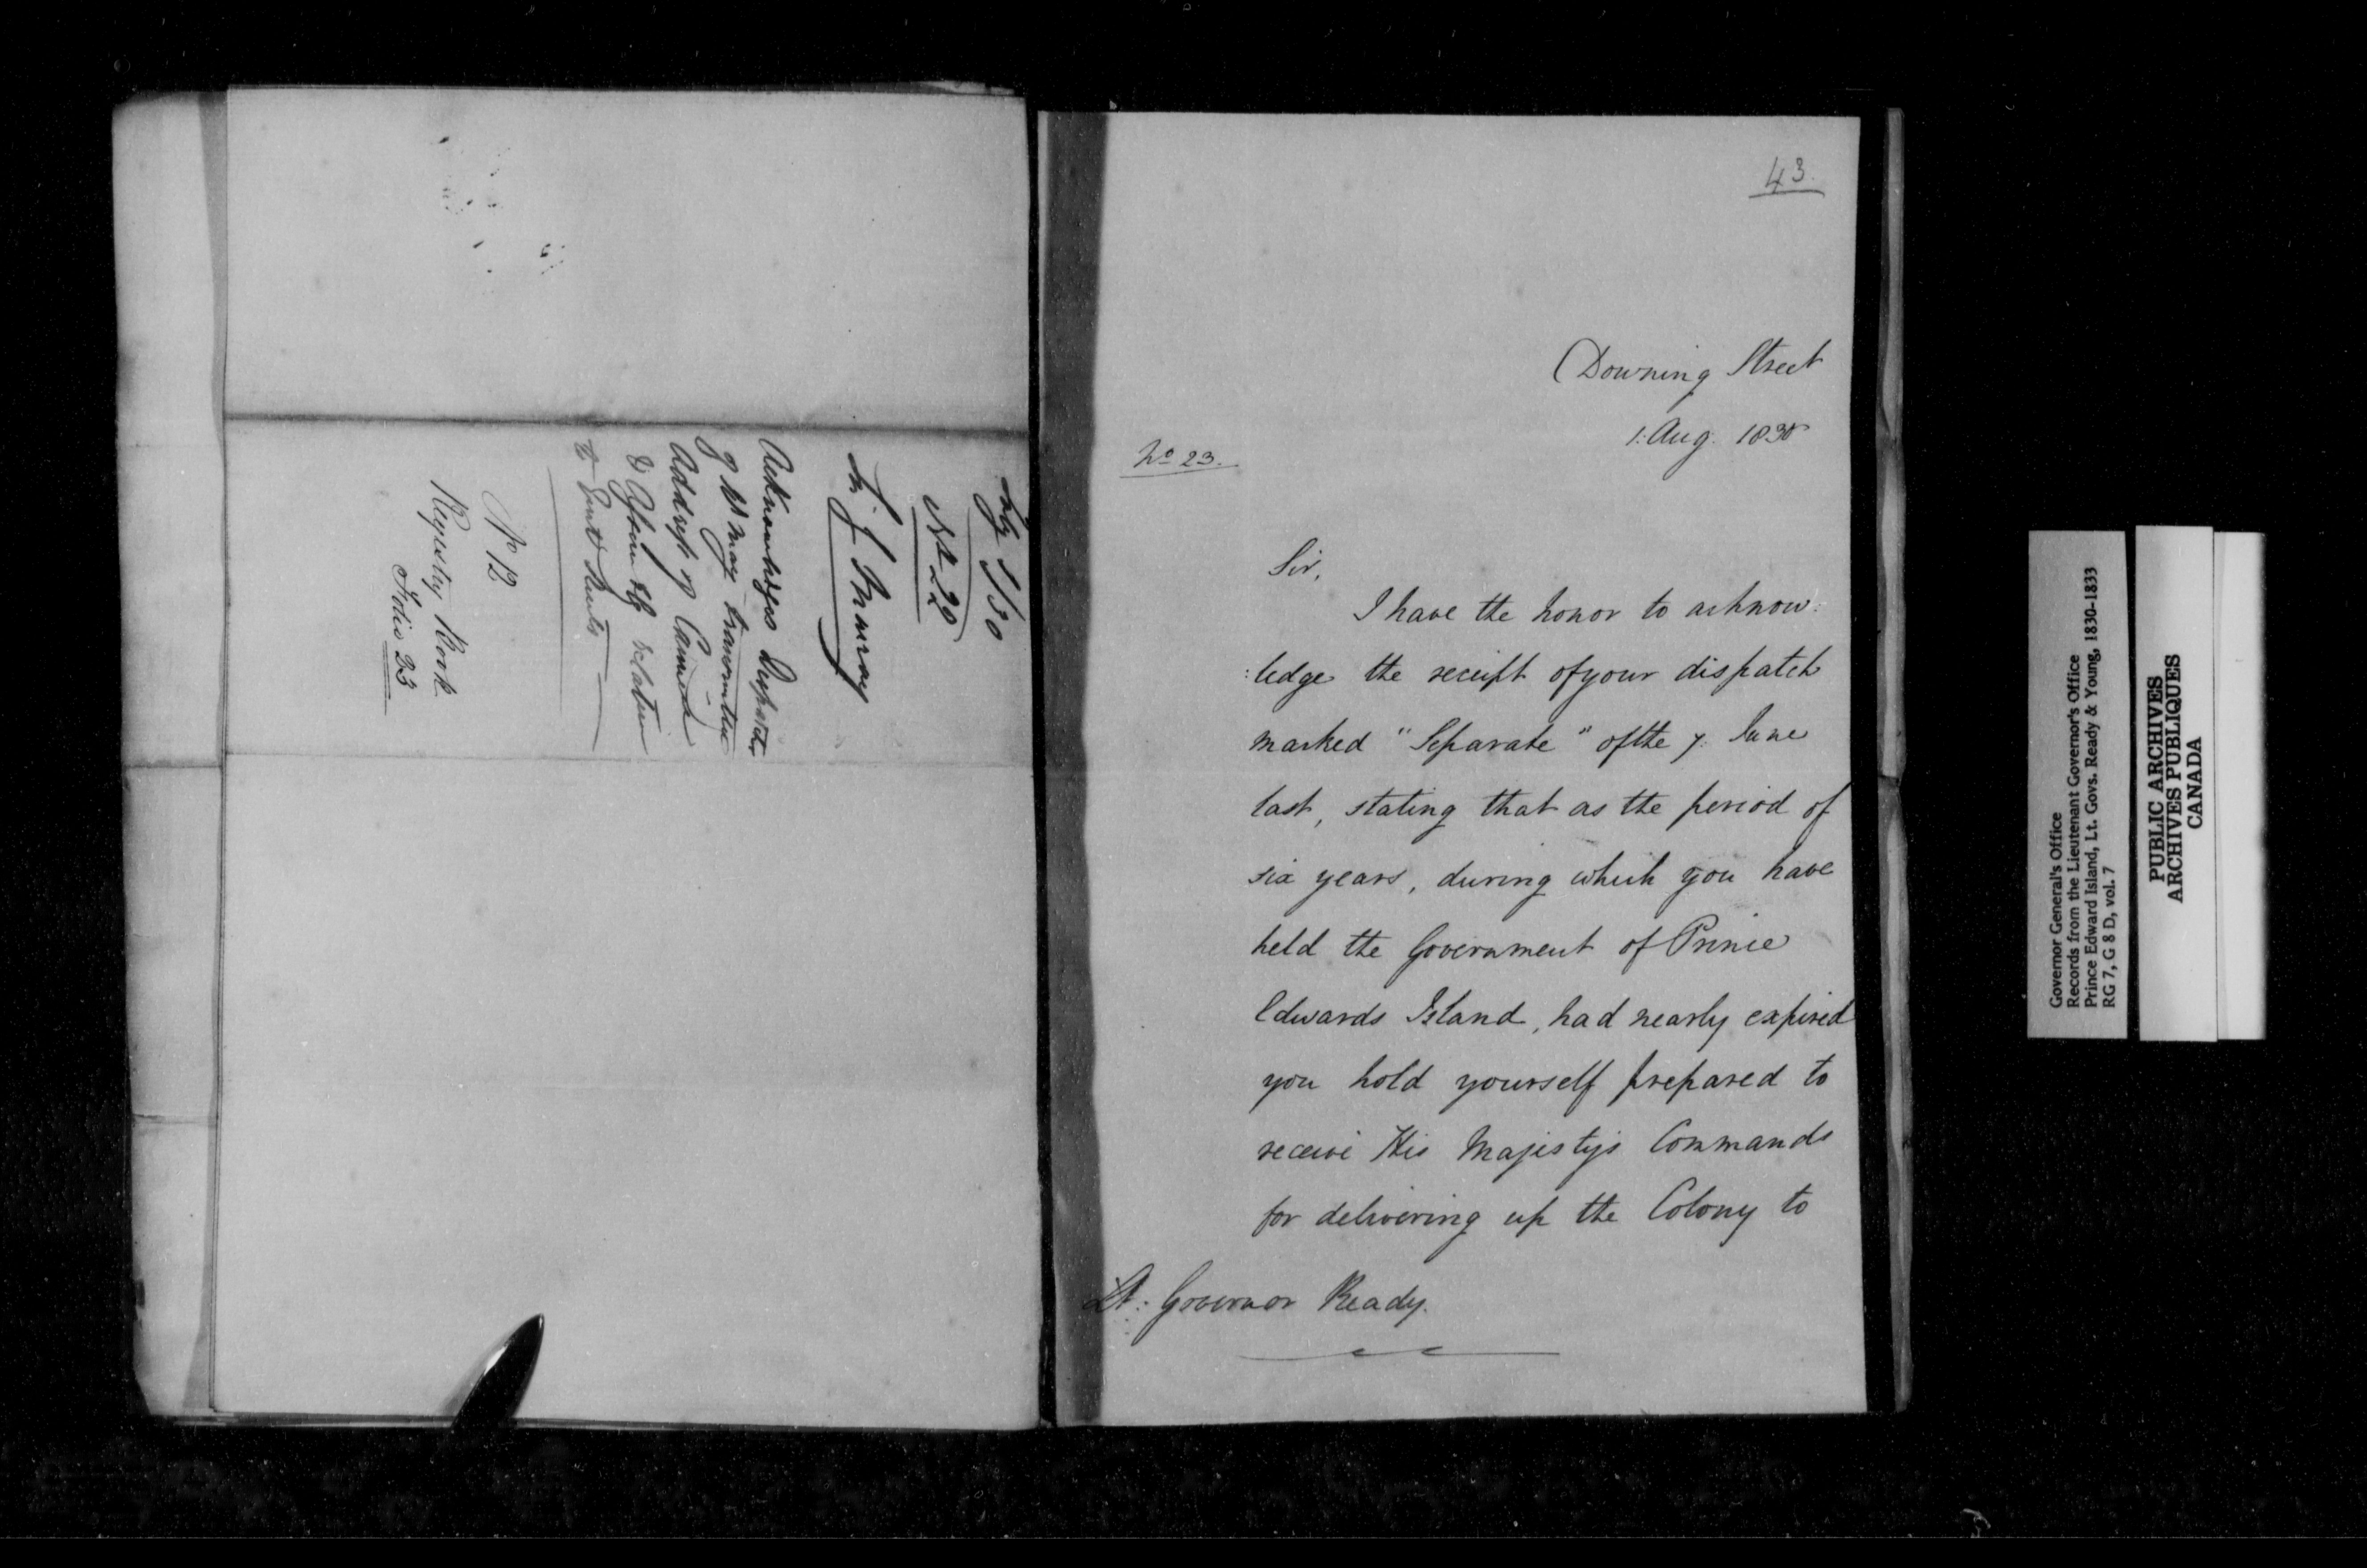 No 22
Sir G Murray
Acknowledges Despatch
of May transmitting
Address of Council
& Assembly relative
to Quit Rents
No 12
Registry Book
Folio 23
43.
Downing Street
1: Aug: 1830
No 23.
Sir,
I have the honor to acknow:
:ledge the receipt of your dispatch
marked "Separate" of the 7: June
last, stating that as the period of
six years, during which you have
held the Government of Prince
Edwards Island, had nearly expired
you hold yourself prepared to
receive His Majesty's Commands
for delivering up the Colony to
Lt: Governor Ready.
Governor General's Office
Records from the Lieutenant Governor's Office
Prince Edward Island, Lt. Govs. Ready & Young, 1830-1833
RG 7, G 8 D, vol. 7
PUBLIC ARCHIVES
ARCHIVES PUBLIQUES
CANADA